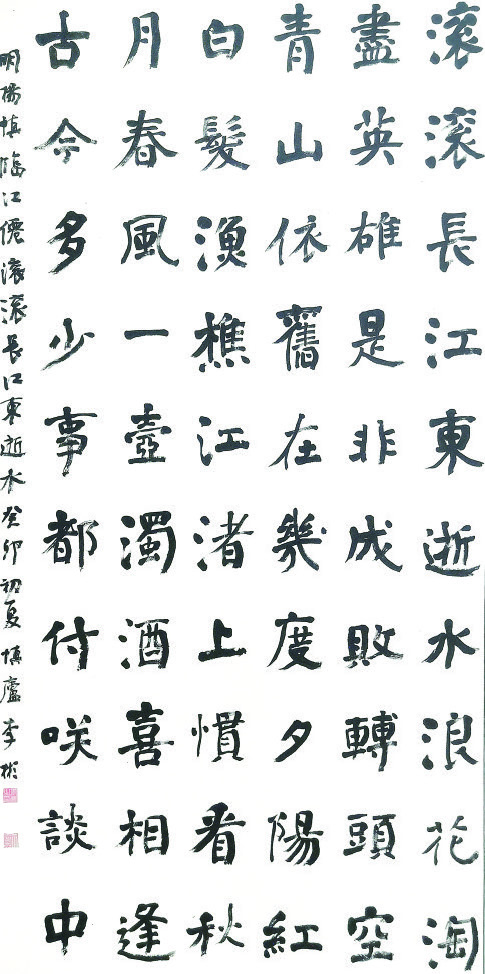 滾滾長江東逝水浪花淘
盡英雄是非成敗轉頭空
青山依舊在幾度夕陽紅
白髮漁樵江渚上慣看秋
月春風一壺濁酒喜相逢
古今多少事都付咲談中
明楊慎臨江僊滾滾長江東逝水癸卯初夏慎廬李彬